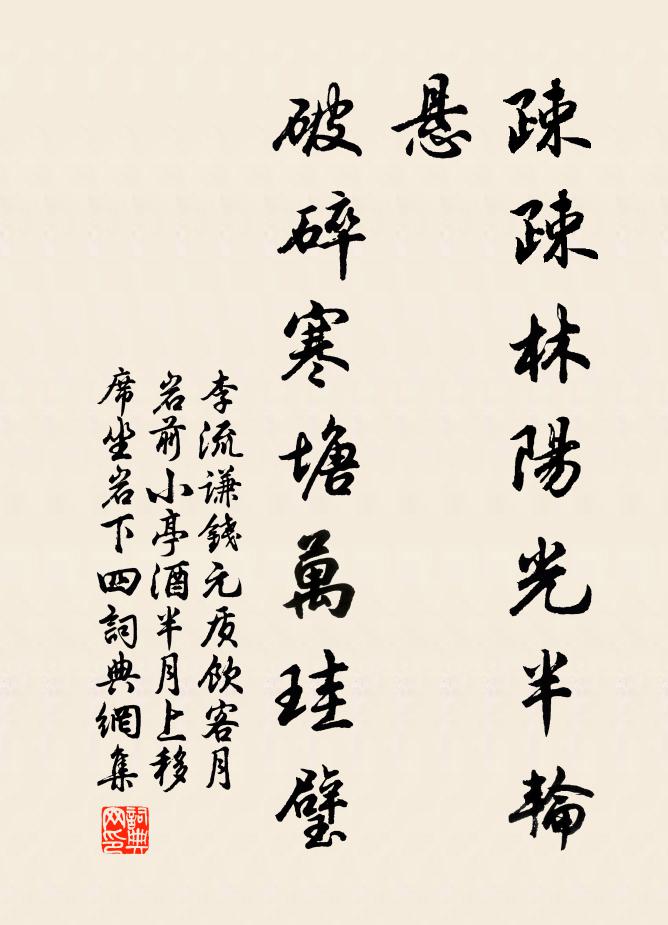 疎疎林陽光半輪
懸
破碎寒塘萬珪璧
李流谦錢元质飲客月
岩前小亭酒半月上移
席坐岩下四詞典網集
詞典
网印